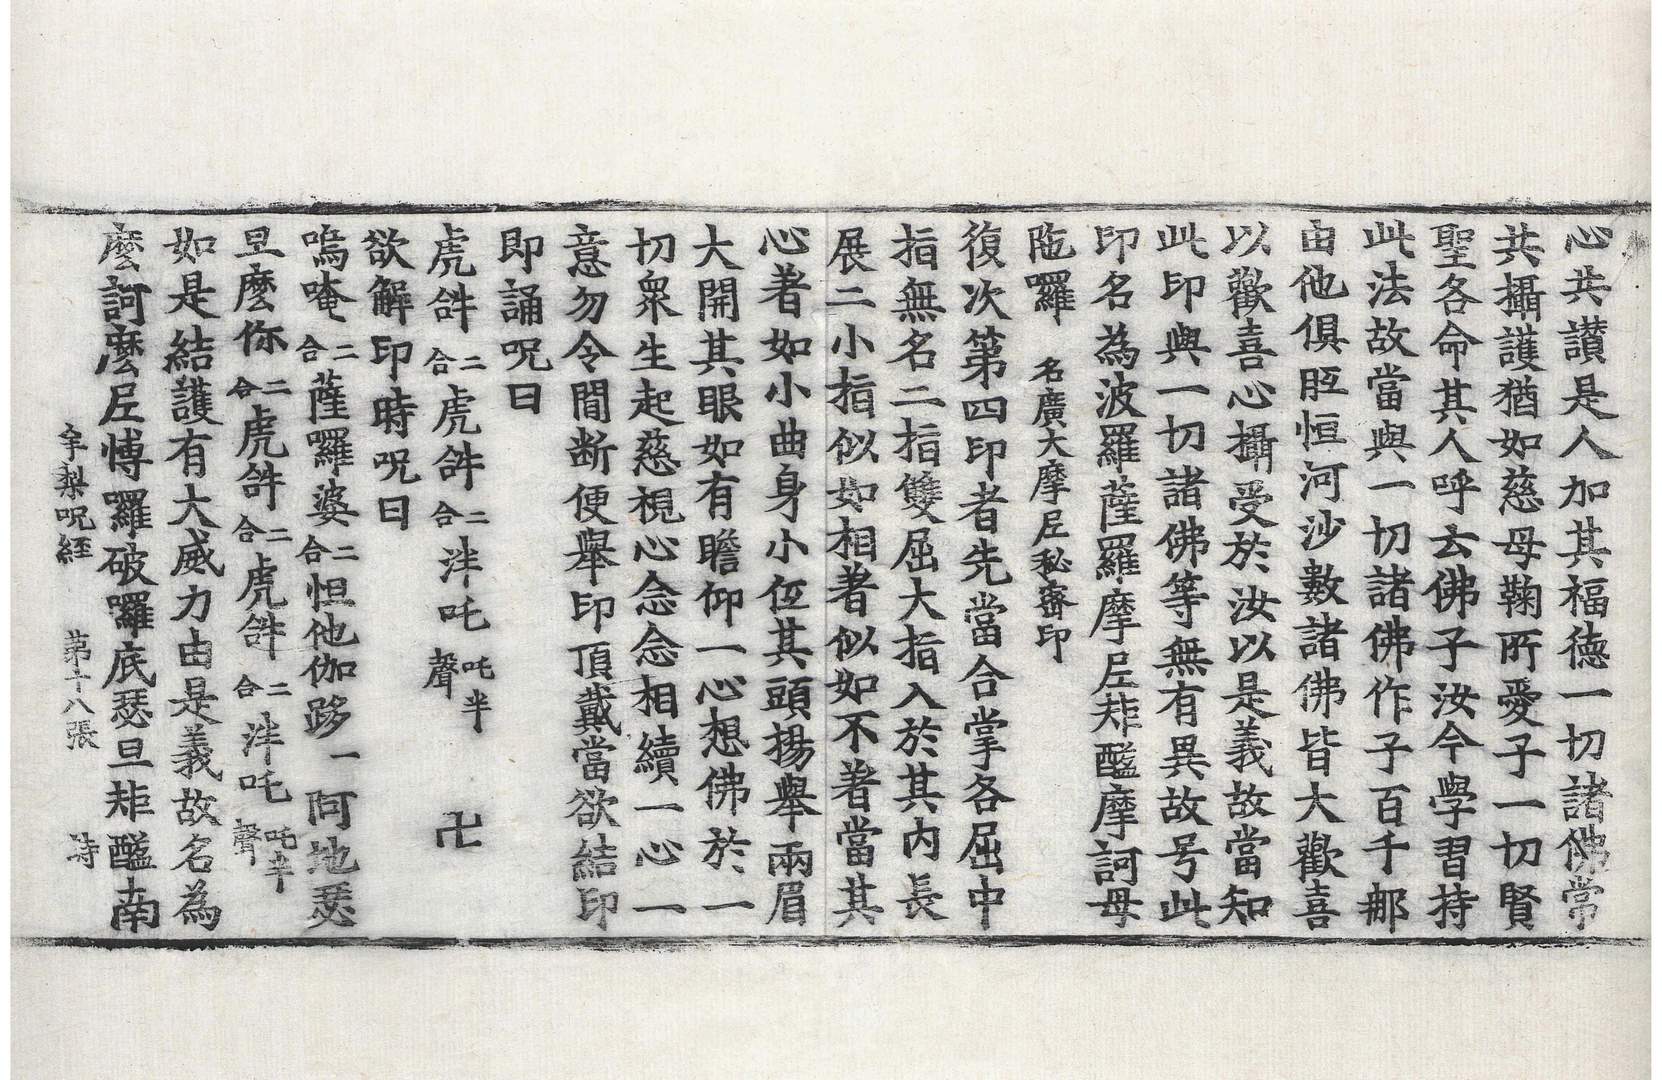 心共讃是人加其福德一切諸佛常
共攝護猶如慈母鞠所愛子一切賢
聖各命其人呼云佛子汝今學習持
此法故當與一切諸佛作子百千那
由他俱胝恒河沙數諸佛皆大歡喜
以歡喜心攝受於汝以是義故當知
此印與一切諸佛等無有異故号此
印名為波羅薩羅摩尼𤙖醯摩訶母
陁囉 名廣大摩尼秘密印
復次第四印者先當合掌各屈中
指無名二指雙屈大指入於其内長
展二小指似如相著似如不著當其
心著如小曲身小伍其頭揚舉兩眉
大開其眼如有瞻仰一心想佛於一
切衆生起慈視心念念相續一心一
意勿令間断便舉印頂戴當欲結印
即誦呪曰
虎𤙖二合虎𤙖二合泮吒吒半聲 卍
欲解印時呪曰
嗚唵二合薩囉婆二合怛他伽跢一阿地瑟
旦麼你二合虎𤙖二合虎𤙖二合泮吒吒半聲
如是結護有大威力由是義故名為
麼訶麼尼愽囉破囉底瑟旦𤙖醯南
牟梨呪経 第十八張 詩